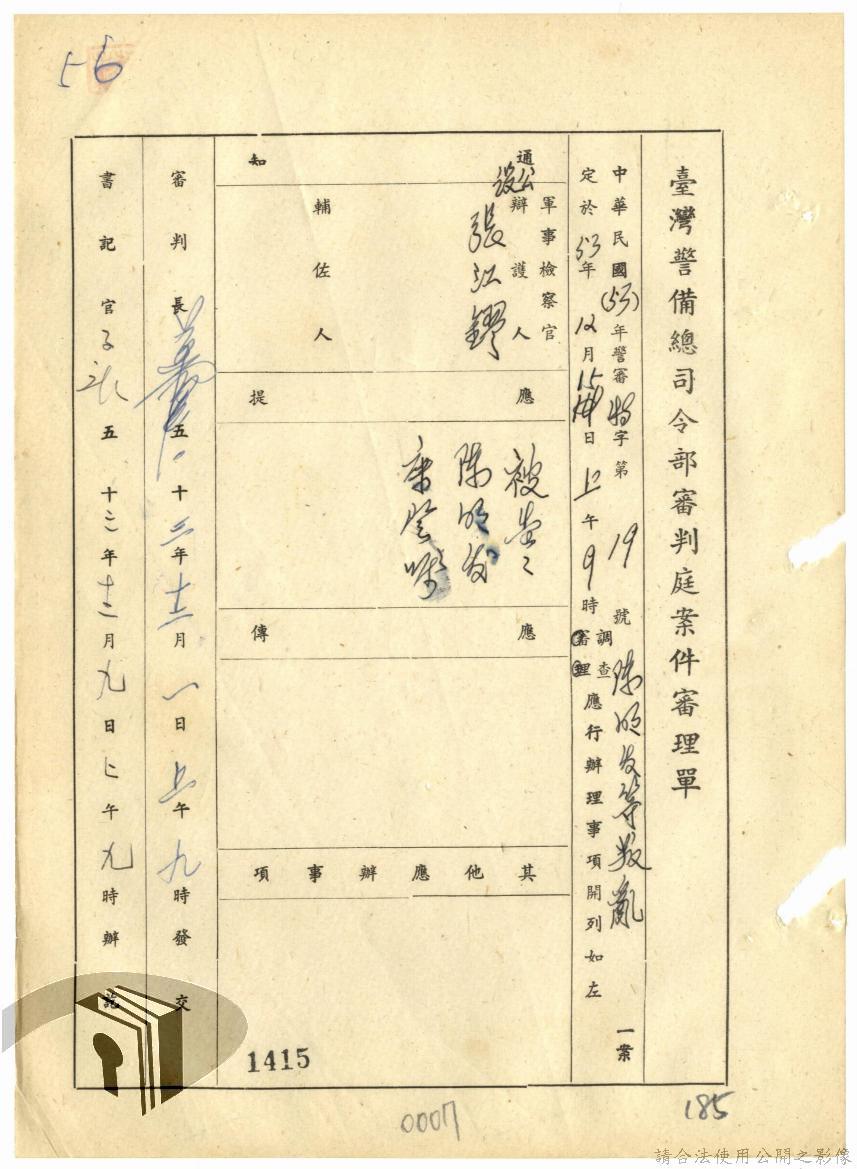 56
臺灣警備總司令部審判庭案件審理單
中華民國(53)年警審特字第19號陳明發等叛亂一案
定於53年12月15日上午9時調查審理應行辦理事項開列如左
通知
軍事檢察官
公設辯護人張江鏐
輔佐人
應提
被告:
陳明發
應傳
其他應辦事項
審判長 五十三年十二月一日上午九時發交
書記官 五十三年十二月九日上午九時辦訖
1415
0007
185
請合法使用公開之影像